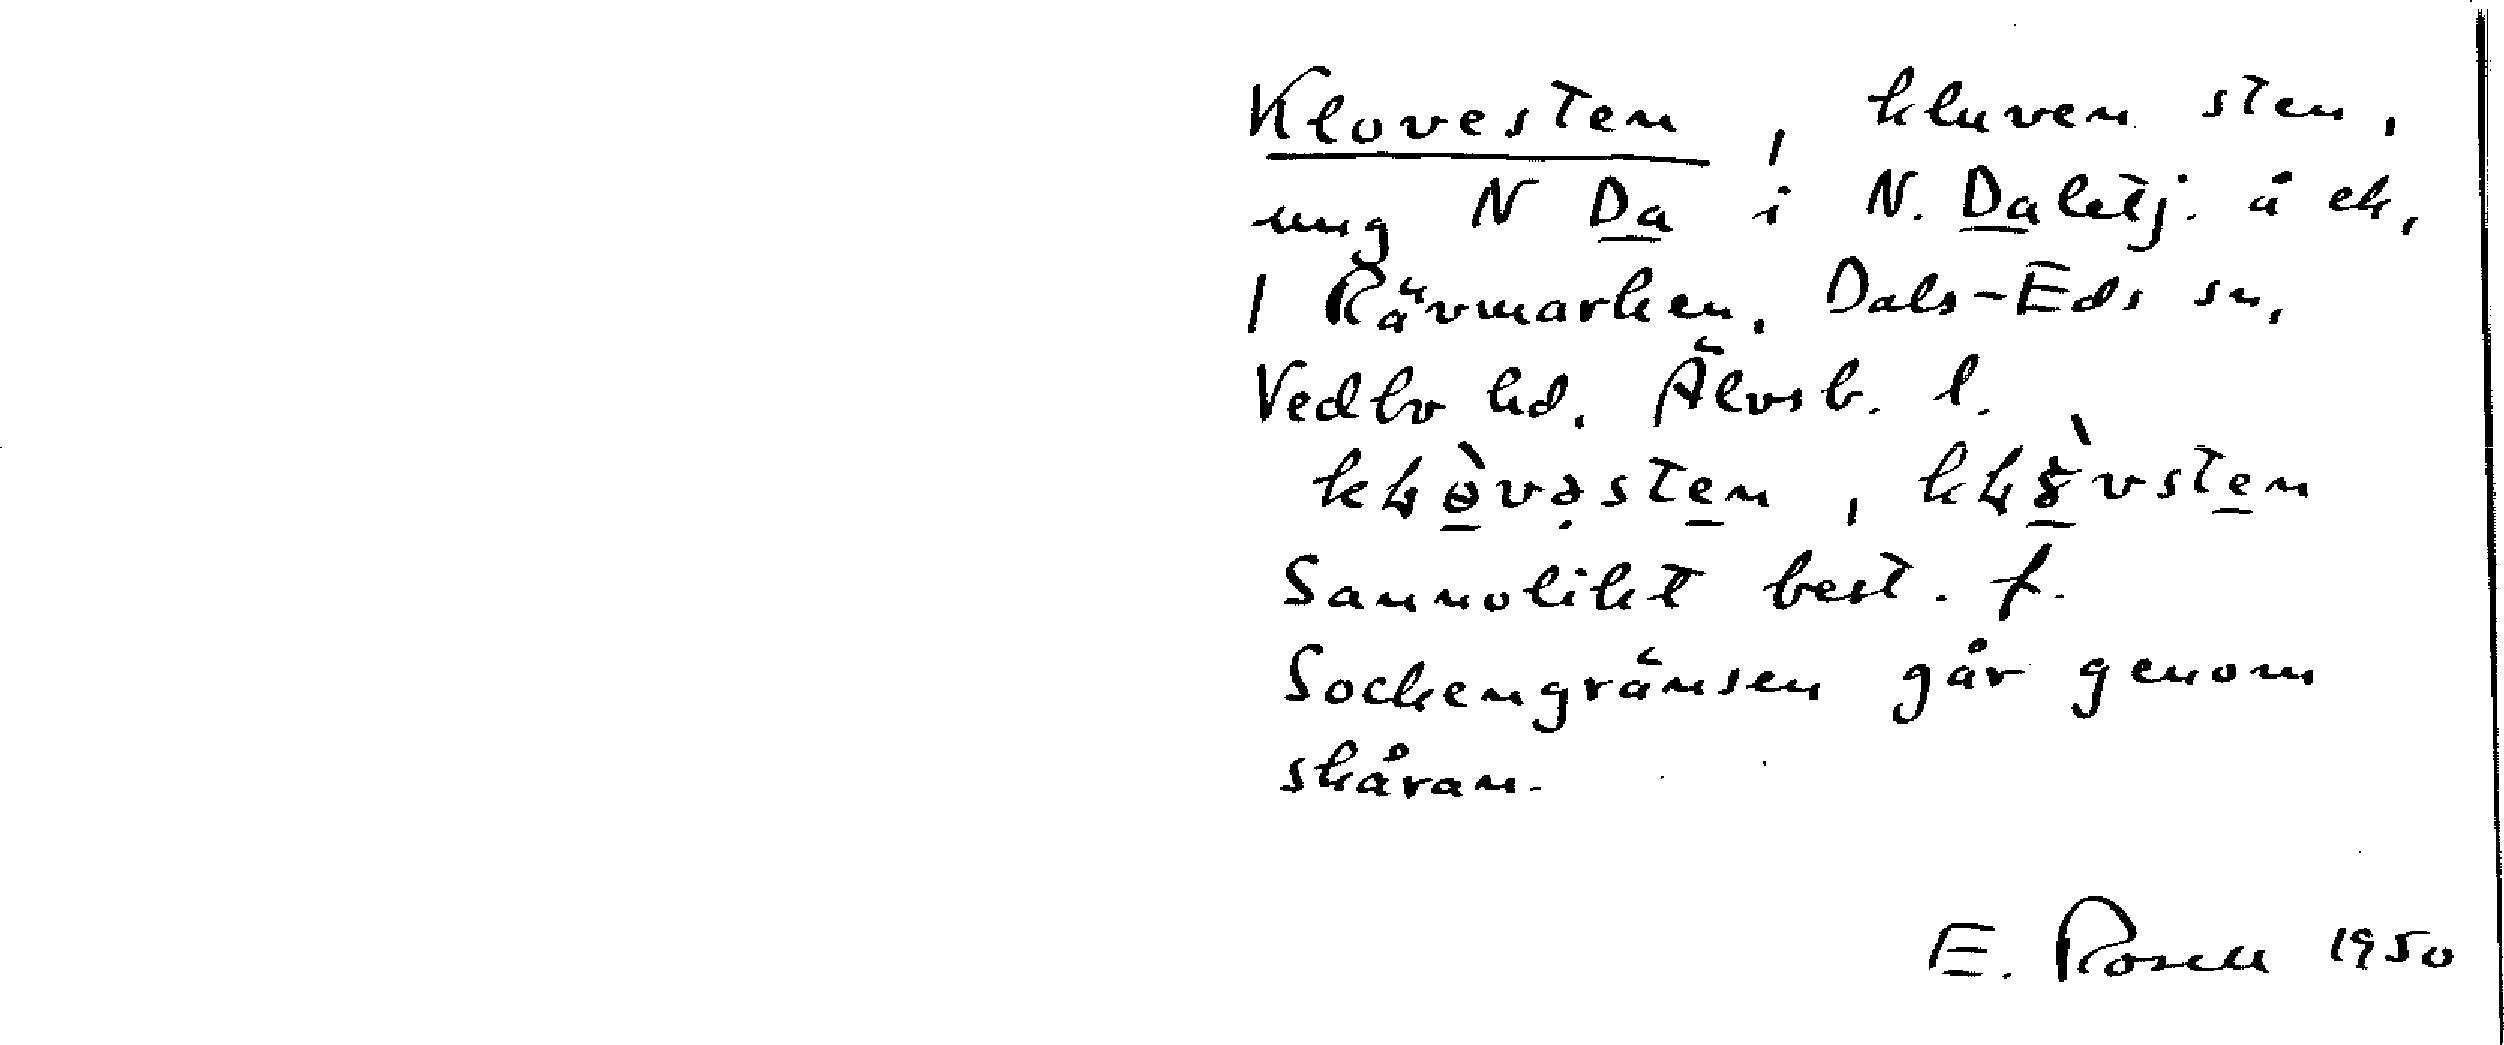 Klovesten, kluven sten,
ung N Da i N. Daletj. å ek,
1 Rävmarken. Dals-Eds sn,
Vedbo hd. Älvsb. l.
Sannolikt best. f.
Sockengränsen går genom
skåran.
E. Rosell 1950